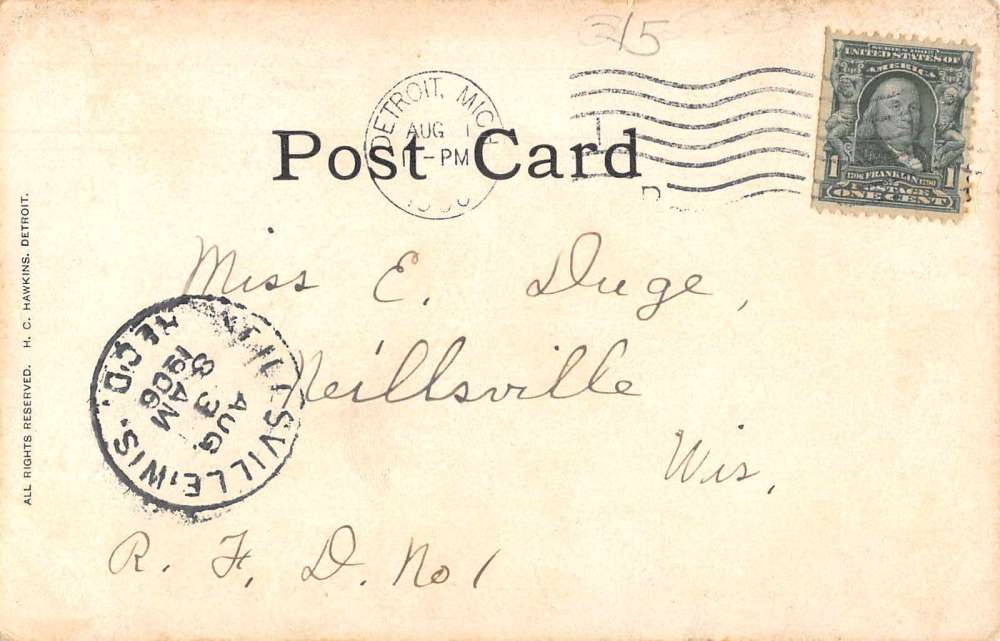 215
DETROIT, MICH.
AUG 1
1-PM
1906
Post Card
SERIES 1902
UNITED STATES OF
AMERICA
1 1706 FRANKLIN 1790 1
POSTAGE
ONE CENT
Miss E. Duge,
Neillsville
Wis.
R. F. D. No 1
NEILLSVILLE, WIS. REC'D.
AUG 3
8 AM
1906
ALL RIGHTS RESERVED. H. C. HAWKINS. DETROIT.